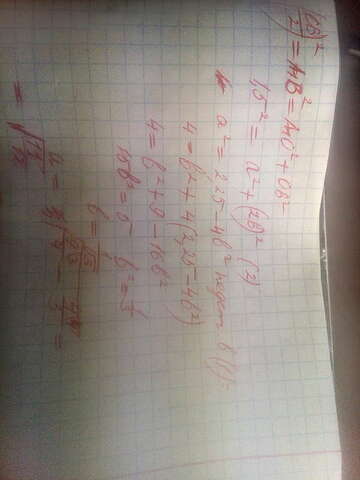 (CB/2)² = MB² = MO² + OB²
1,5² = a² + (2b)² (2)
a² = 2,25 - 4b² в (1):
4 = b² + 4(2,25 - 4b²)
4 = b² + 9 - 16b²
15b² = 5 b² = 1/3
b =
a =
=